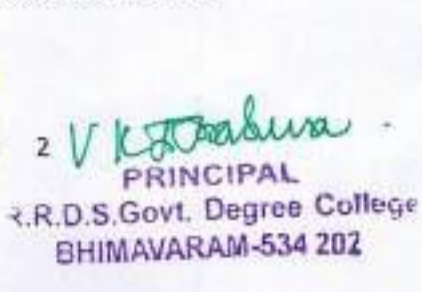 2 V K
PRINCIPAL
R.R.D.S.Govt. Degree College
BHIMAVARAM-534 202